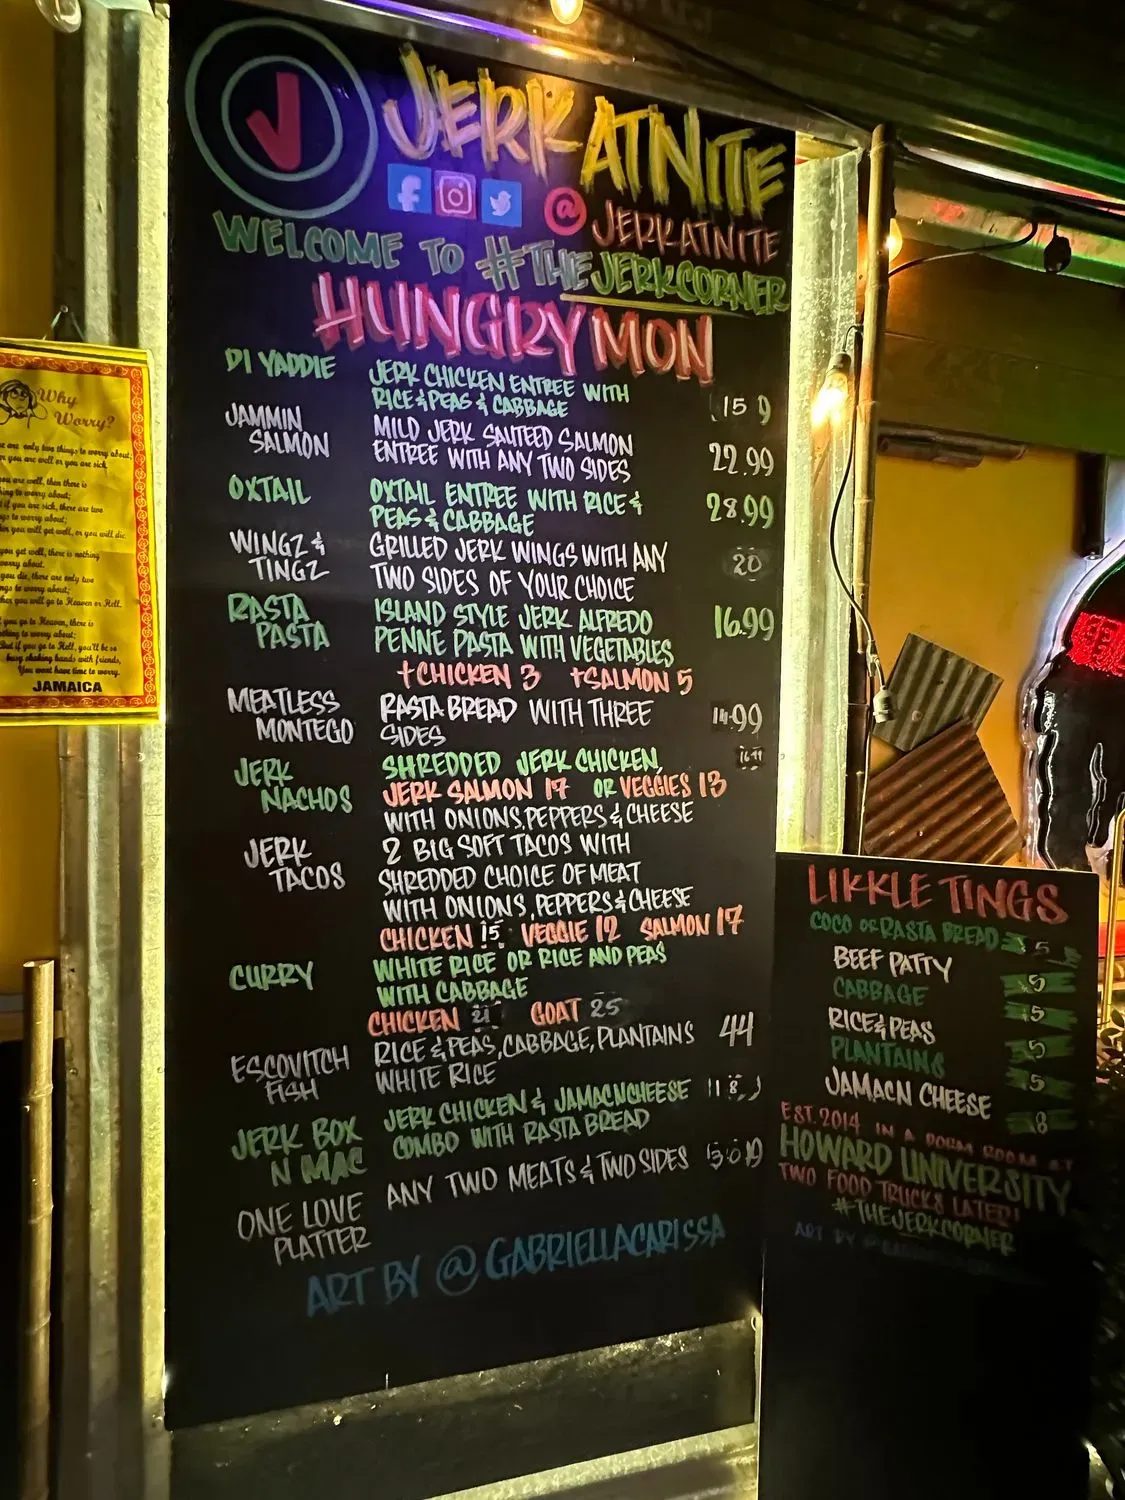 JERKATNITE
@JERKATNITE
WELCOME TO #THEJERKCORNER
HUNGRY MON
DI YADDIE
JERK CHICKEN ENTREE WITH
RICE & PEAS & CABBAGE
JAMMIN
SALMON
MILD JERK SAUTEED SALMON
ENTREE WITH ANY TWO SIDES
22.99
OXTAIL
OXTAIL ENTREE WITH RICE &
PEAS & CABBAGE
28.99
WINGZ &
TINGZ
GRILLED JERK WINGS WITH ANY
TWO SIDES OF YOUR CHOICE
20
RASTA
PASTA
ISLAND STYLE JERK ALFREDO
PENNE PASTA WITH VEGETABLES
16.99
+CHICKEN 3 +SALMON 5
MEATLESS
MONTEGO
RASTA BREAD WITH THREE
SIDES
JERK
NACHOS
SHREDDED JERK CHICKEN,
JERK SALMON 17 OR VEGGIES 13
WITH ONIONS, PEPPERS & CHEESE
JERK
TACOS
2 BIG SOFT TACOS WITH
SHREDDED CHOICE OF MEAT
WITH ONIONS, PEPPERS & CHEESE
CHICKEN 15 VEGGIE 12 SALMON 17
CURRY
WHITE RICE OR RICE AND PEAS
WITH CABBAGE
CHICKEN 21 GOAT 25
ESCOVITCH
FISH
RICE & PEAS, CABBAGE, PLANTAINS
WHITE RICE
44
JERK BOX
N MAC
JERK CHICKEN & JAMACNCHEESE
COMBO WITH RASTA BREAD
ONE LOVE
PLATTER
ANY TWO MEATS & TWO SIDES
ART BY @GABRIELLACARISSA
LIKKLE TINGS
COCO OR RASTA BREAD 5
BEEF PATTY 5
CABBAGE 5
RICE & PEAS 5
PLANTAINS 5
JAMACN CHEESE 8
EST. 2014 IN A DORM ROOM AT
HOWARD UNIVERSITY
TWO FOOD TRUCKS LATER!
#THEJERKCORNER
ART BY
Why
Worry?
are only two things to worry about;
you are well or you are sick.
you are well, then there is
thing to worry about;
if you are sick, there are two
to worry about;
you will get well, or you will die.
you get well, there is nothing
worry about.
you die, there are only two
to worry about;
you will go to Heaven or Hell.
you go to Heaven, there is
to worry about;
But if you go to Hell, you'll be so
busy shaking hands with friends,
You wont have time to worry.
JAMAICA